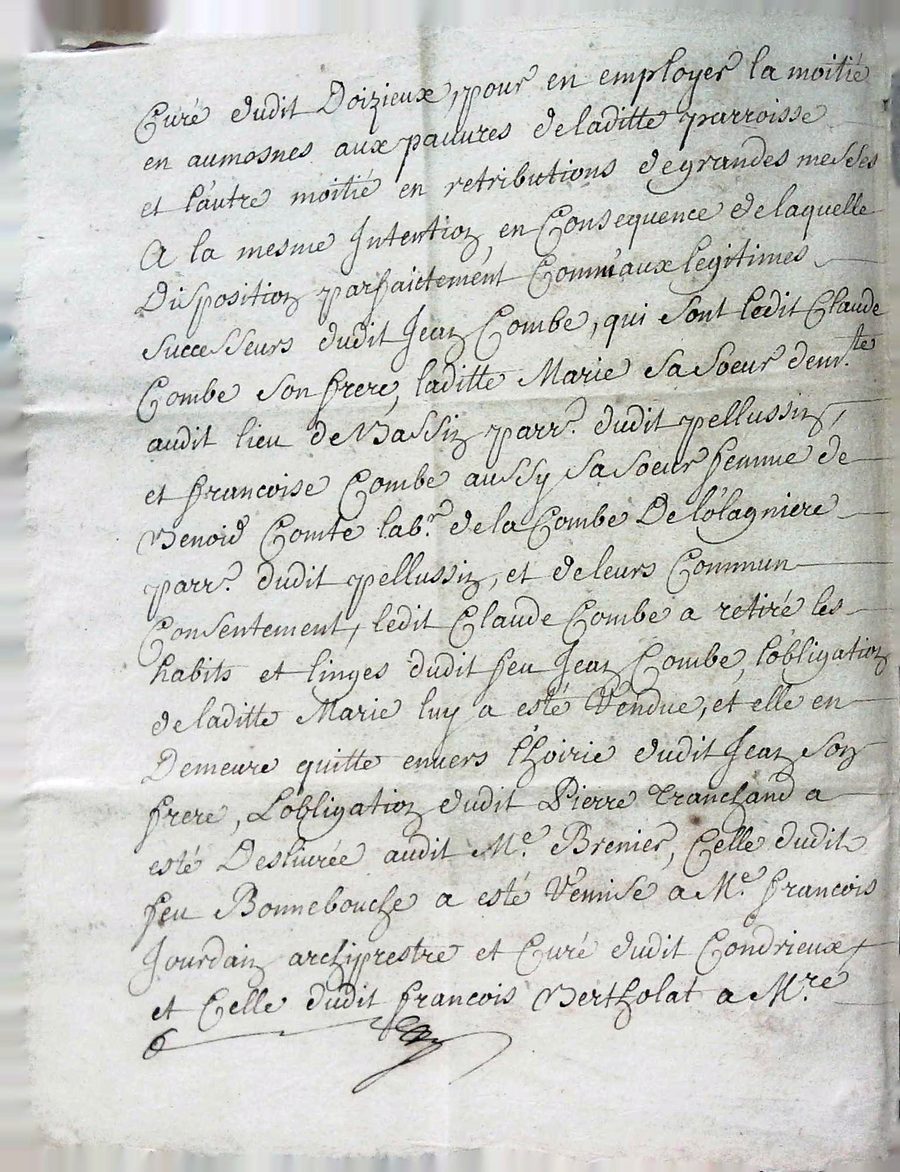 Curé dudit Doizieux, pour en employer la moitié
en aumosnes aux pauures deladitte parroisse
et l'autre moitié en retributions degrandes messes
A la mesme Intention, en Consequence delaquelle
Disposition parfaictement Comm'aux legitimes
successeurs dudit Jean Combe, qui sont ledit Claude
Combe son frere, laditte Marie sa soeur demte
audit lieu de Vassin parr.e dudit pellussin,
et francoise Combe aussy sa soeur femme de
Benoid Comte lab.r dela Combe Del'olagniere
parr.e dudit pellussin, et deleurs Commun
Consentement, ledit Claude Combe a retiré les
habits et linges dudit feu Jean Combe, l'obligation
deladitte Marie luy a esté Rendue, et elle en
Demeure quitte enuers l'hoirie dudit Jean son
frere, L'obligation dudit Pierre tranchand a
esté Desliurée audit M.e Brenier, Celle dudit
feu Bonnebouche a esté Remise a M.e francois
Jourdain archiprestre et Curé dudit Condrieux
et Celle dudit francois Bertholat a M.re
6